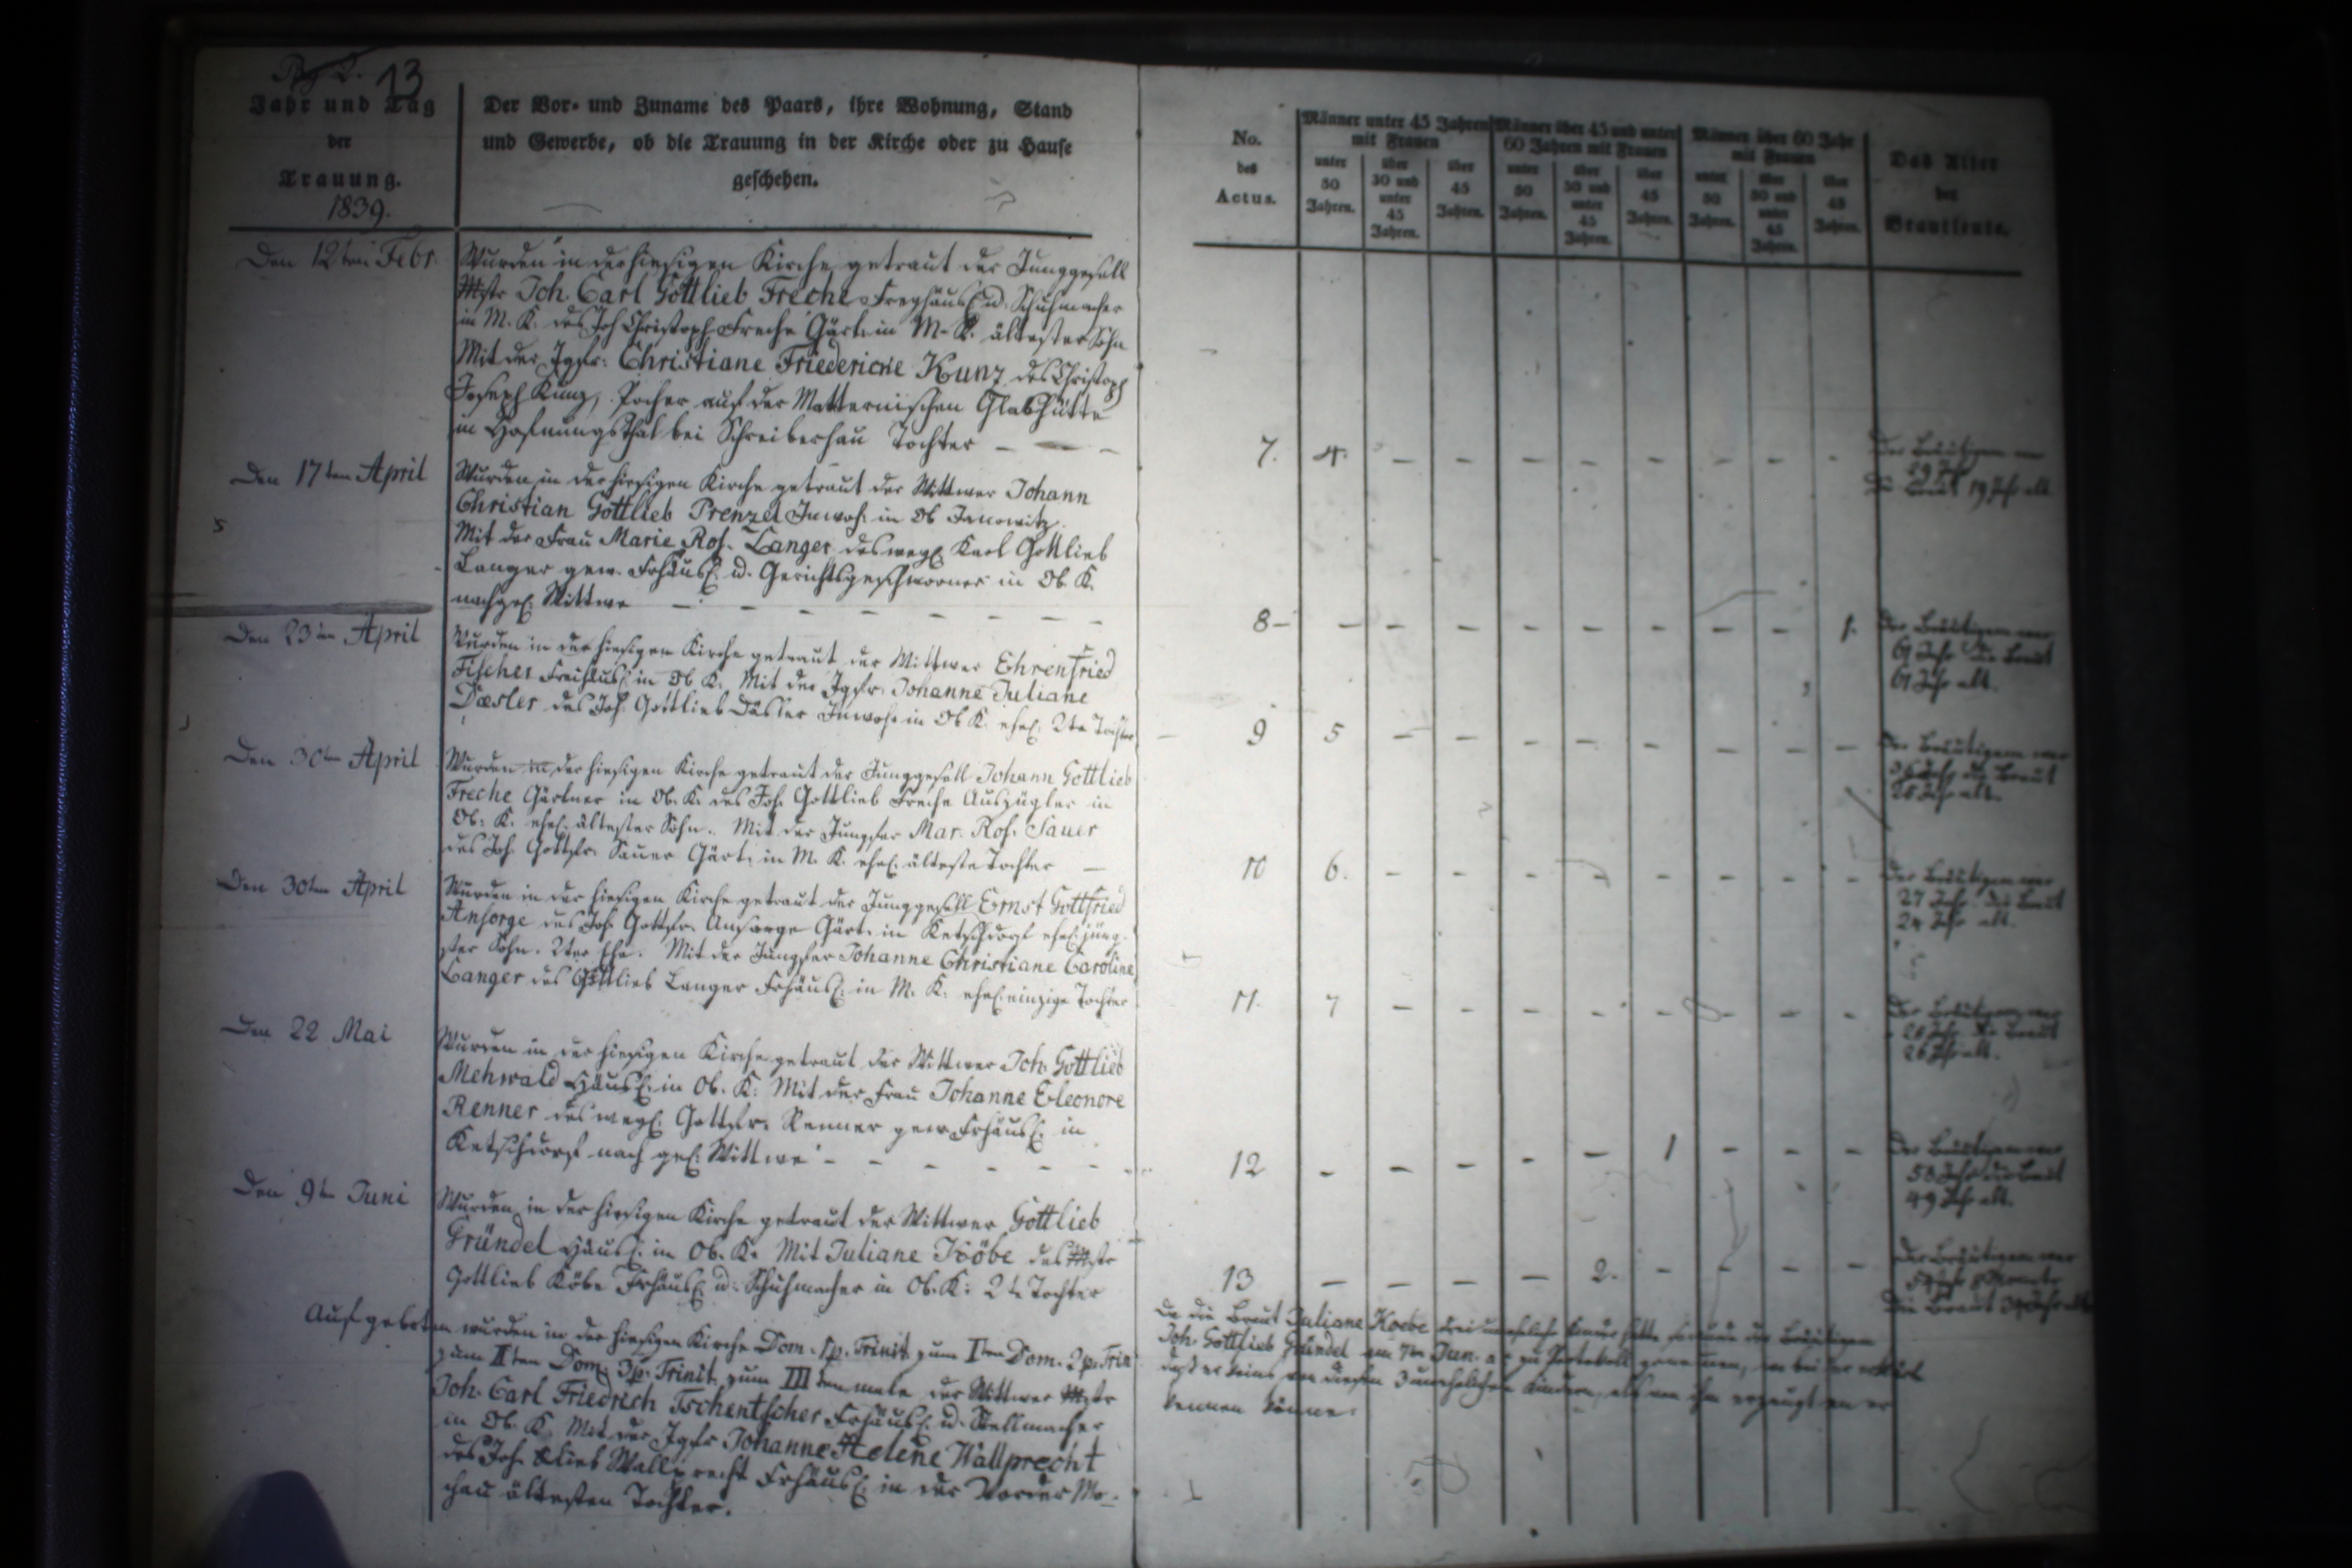 13
Jahr und Tag
der
Trauung.
1839.
Der Vor- und Zuname des Paars, ihre Wohnung, Stand
und Gewerbe, ob die Trauung in der Kirche oder zu Hause
geschehen.
No.
des
Actus.
Männer unter 45 Jahren
mit Frauen
unter
30
Jahren.
über
30 und
unter
45
Jahren.
über
45
Jahren.
Männer über 45 und unter
60 Jahren mit Frauen
unter
30
Jahren.
über
30 und
unter
45
Jahren.
über
45
Jahren.
Männer über 60 Jahr
mit Frauen
unter
30
Jahren.
über
30 und
unter
45
Jahren.
über
45
Jahren.
Das Alter
der
Brautleute.
Den 12ten Febr.
Wurden in der hiesigen Kirche getraut der Junggesell
Mstr Joh. Carl Gottlieb Freche Freyhäusl. u. Schuhmacher
in M. K. des Joh Christoph Freche Gärt. in M. K. ältester Sohn
Mit der Jgfr: Christiane Friedericke Kunz des Christoph
Joseph Kunz, Pocher auf der Matternischen Glashütte
in Hoffnungsthal bei Schreiberhau Tochter – – –
7. 4. – – – – – – – -
Der Bräutigam war
29 Jhr
die Braut 19 Jhr alt
Den 17ten April
Wurden in der hiesigen Kirche getraut der Wittwer Johann
Christian Gottlieb Prenzel Inwoh. in Ob Janowitz.
Mit der Frau Marie Ros. Langer des wegl. Karl Gottlieb
Langer gew. Frhäusl. u. Gerichtsgeschworner in Ob. K.
nachgel. Wittwe – – – – – – – –
8 – – – – – – – – – 1.
Der Bräutigam war
61 Jahr die Braut
61 Jhr alt.
Den 23ten April
Wurden in der hiesigen Kirche getraut der Wittwer Ehrenfried
Fischer Freihäusl. in Ob K. Mit der Jgfr. Johanne Juliane
Daesler des Joh. Gottlieb Däsler Inwoh. in Ob K. ehel. 2te Tochter
9 5 – – – – – – – –
Der Bräutigam war
Jhr die Braut
Jhr alt.
Den 30ten April
Wurden in der hiesigen Kirche getraut der Junggesell Johann Gottlieb
Freche Gärtner in Ob. K. des Joh. Gottlieb Freche Auszügler in
Ob: K. ehel. ältester Sohn. Mit der Jungfer Mar. Ros. Sauer
des Joh. Gottfr. Sauer Gärt. in M. K. ehel. älteste Tochter –
10 6. – – – – – – – –
Der Bräutigam war
27 Jhr die Braut
24 Jhr alt.
Den 30ten April
Wurden in der hiesigen Kirche getraut der Junggesell Ernst Gottfried
Ansorge des Joh. Gottfr. Ansorge Gärt. in Ketschdorf ehel. jüng-
ster Sohn. 2ter Ehe. Mit der Jungfer Johanne Christiane Caroline
Langer des Gottlieb Langer Frhäusl. in M. K. ehel. einzige Tochter
11. 7 – – – – – – – –
Der Bräutigam war
26 Jhr die Braut
26 Jhr alt.
Den 22 Mai
Wurden in der hiesigen Kirche getraut der Wittwer Joh. Gottlieb
Mehwald Häusl. in Ob. K: Mit der Frau Johanne Eleonore
Renner des wegl. Gottfr. Renner gew Frhäusl. in
Ketschdorf nach gel. Wittwe – – – – – –
12 – – – – – 1 – – –
Der Bräutigam war
58 Jhr die Braut
49 Jhr alt.
Den 9ten Juni
Wurden in der hiesigen Kirche getraut der Wittwer Gottlieb
Gründel Häusl. in Ob. K. Mit Juliane Köbe des Mstr
Gottlieb Köbe Frhäusl. u. Schuhmacher in Ob. K: 2te Tochter
13 – – – – 2. – – – –
Der Bräutigam war
Die Braut Jhr alt
Aufgeboten wurden in der hiesigen Kirche Dom. 1 p. Trinit zum Iten Dom. 2 p. Trin
zum IIten Dom. 3 p. Trinit. zum IIIten male der Wittwer Mstr
Joh. Carl Friedrich Tschentscher Frhäusl. u. Stellmacher
in Ob. K. Mit der Jgfr Johanne Helene Wallprecht
des Joh. Elias Wallprecht Frhäusl. in der Vorder Mo-
chau ältesten Tochter.
Da die Braut Juliane Koebe drei uneheliche Kinder hatte so wurde der Bräutigam
Joh. Gottlieb Gründel am 7ten Jun. zu Protokoll genommen,
daß er keins von diesen 3 unehelichen Kindern, als von ihm erzeugt an er
kennen könne.